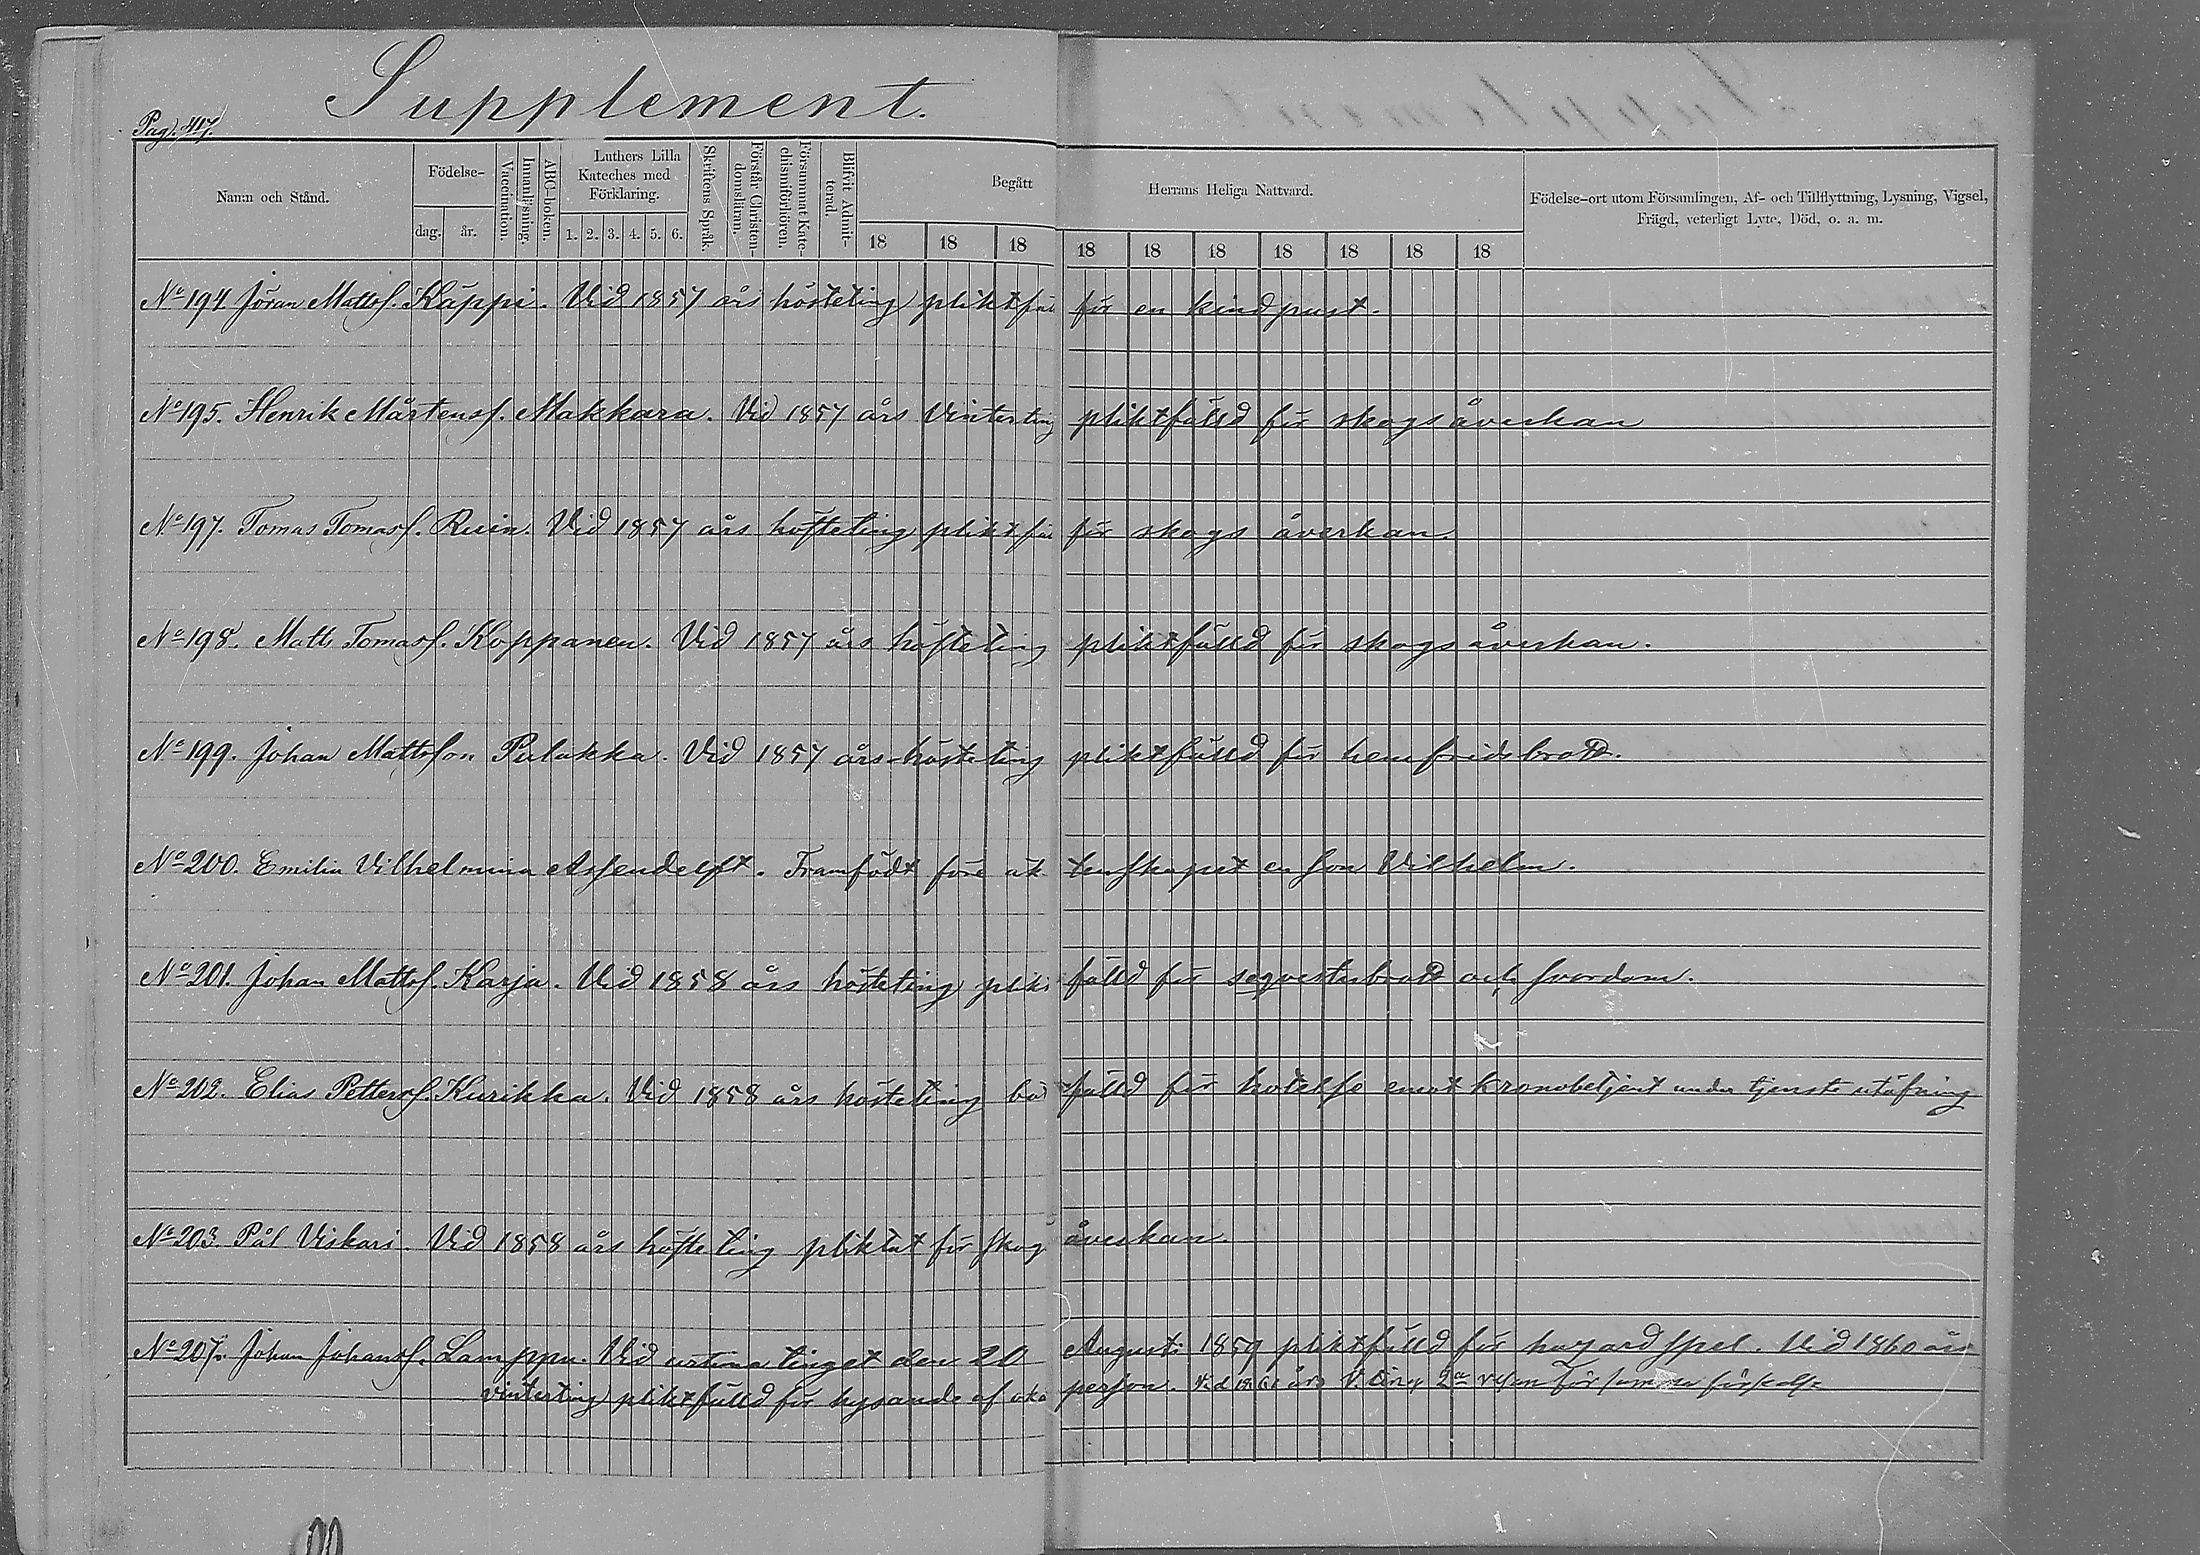 Supplement.
Pag. 417.
Namn och Stånd.
Födelse-
dag.
år.
Vaccination.
Innanläsning.
ABC-boken.
Luthers Lilla
Kateches med
Förklaring.
1. 2. 3. 4. 5. 6.
Skriftens Språk.
Förstår Christen-
domsläran.
Försummat Kate-
chismiförhören.
Blifvit Admit-
terad.
Begått Herrans Heliga Nattvard.
18 18 18 18 18 18 18 18 18 18
Födelse-ort utom Församlingen, Af- och Tillflyttning, Lysning, Vigsel,
Frägd, veterligt Lyte, Död, o. a. m.
No 194 Jöran Mattss. Käppi. Vid 1857 års hösteting pliktfäl för en kindpust.
No 195. Henrik Mårtenss. Makkara. Vid 1857 års Vinterting pliktfälld för skogsåverkan
No 197. Tomas Tomass. Ruin. Vid 1857 års hösteting pliktfäl för skogs åverkan.
No 198. Matts Tomass. Koppanen. Vid 1857 års hösteting pliktfälld för skogsåverkan.
No 199. Johan Mattsson Pulakka. Vid 1857 års hösteting pliktfälld för hemfridsbrott.
No 200. Emilia Vilhelmina Assendelft. Framfödt före äk tenskapet en son Vilhelm.
No 201. Johan Mattss. Karja. Vid 1858 års hösteting plikt fälld för seqvesterbrott och svordom.
No 202. Elias Petterss. Kurikka. Vid 1858 års hösteting böt fälld för hotelse emot kronobetjent under tjensteutöfning
No 203. Pål Viskari. Vid 1858 års hösteting pliktat för skog åverkan.
No 207. Johan Johanss. Lamppu. Vid urtima tinget den 20 Augusti 1859 pliktfälld för hazardspel. Vid 1860 års
vinterting pliktfälld för hysande af person. Vid 1861 års V. ting 2a resan för samma förseelse